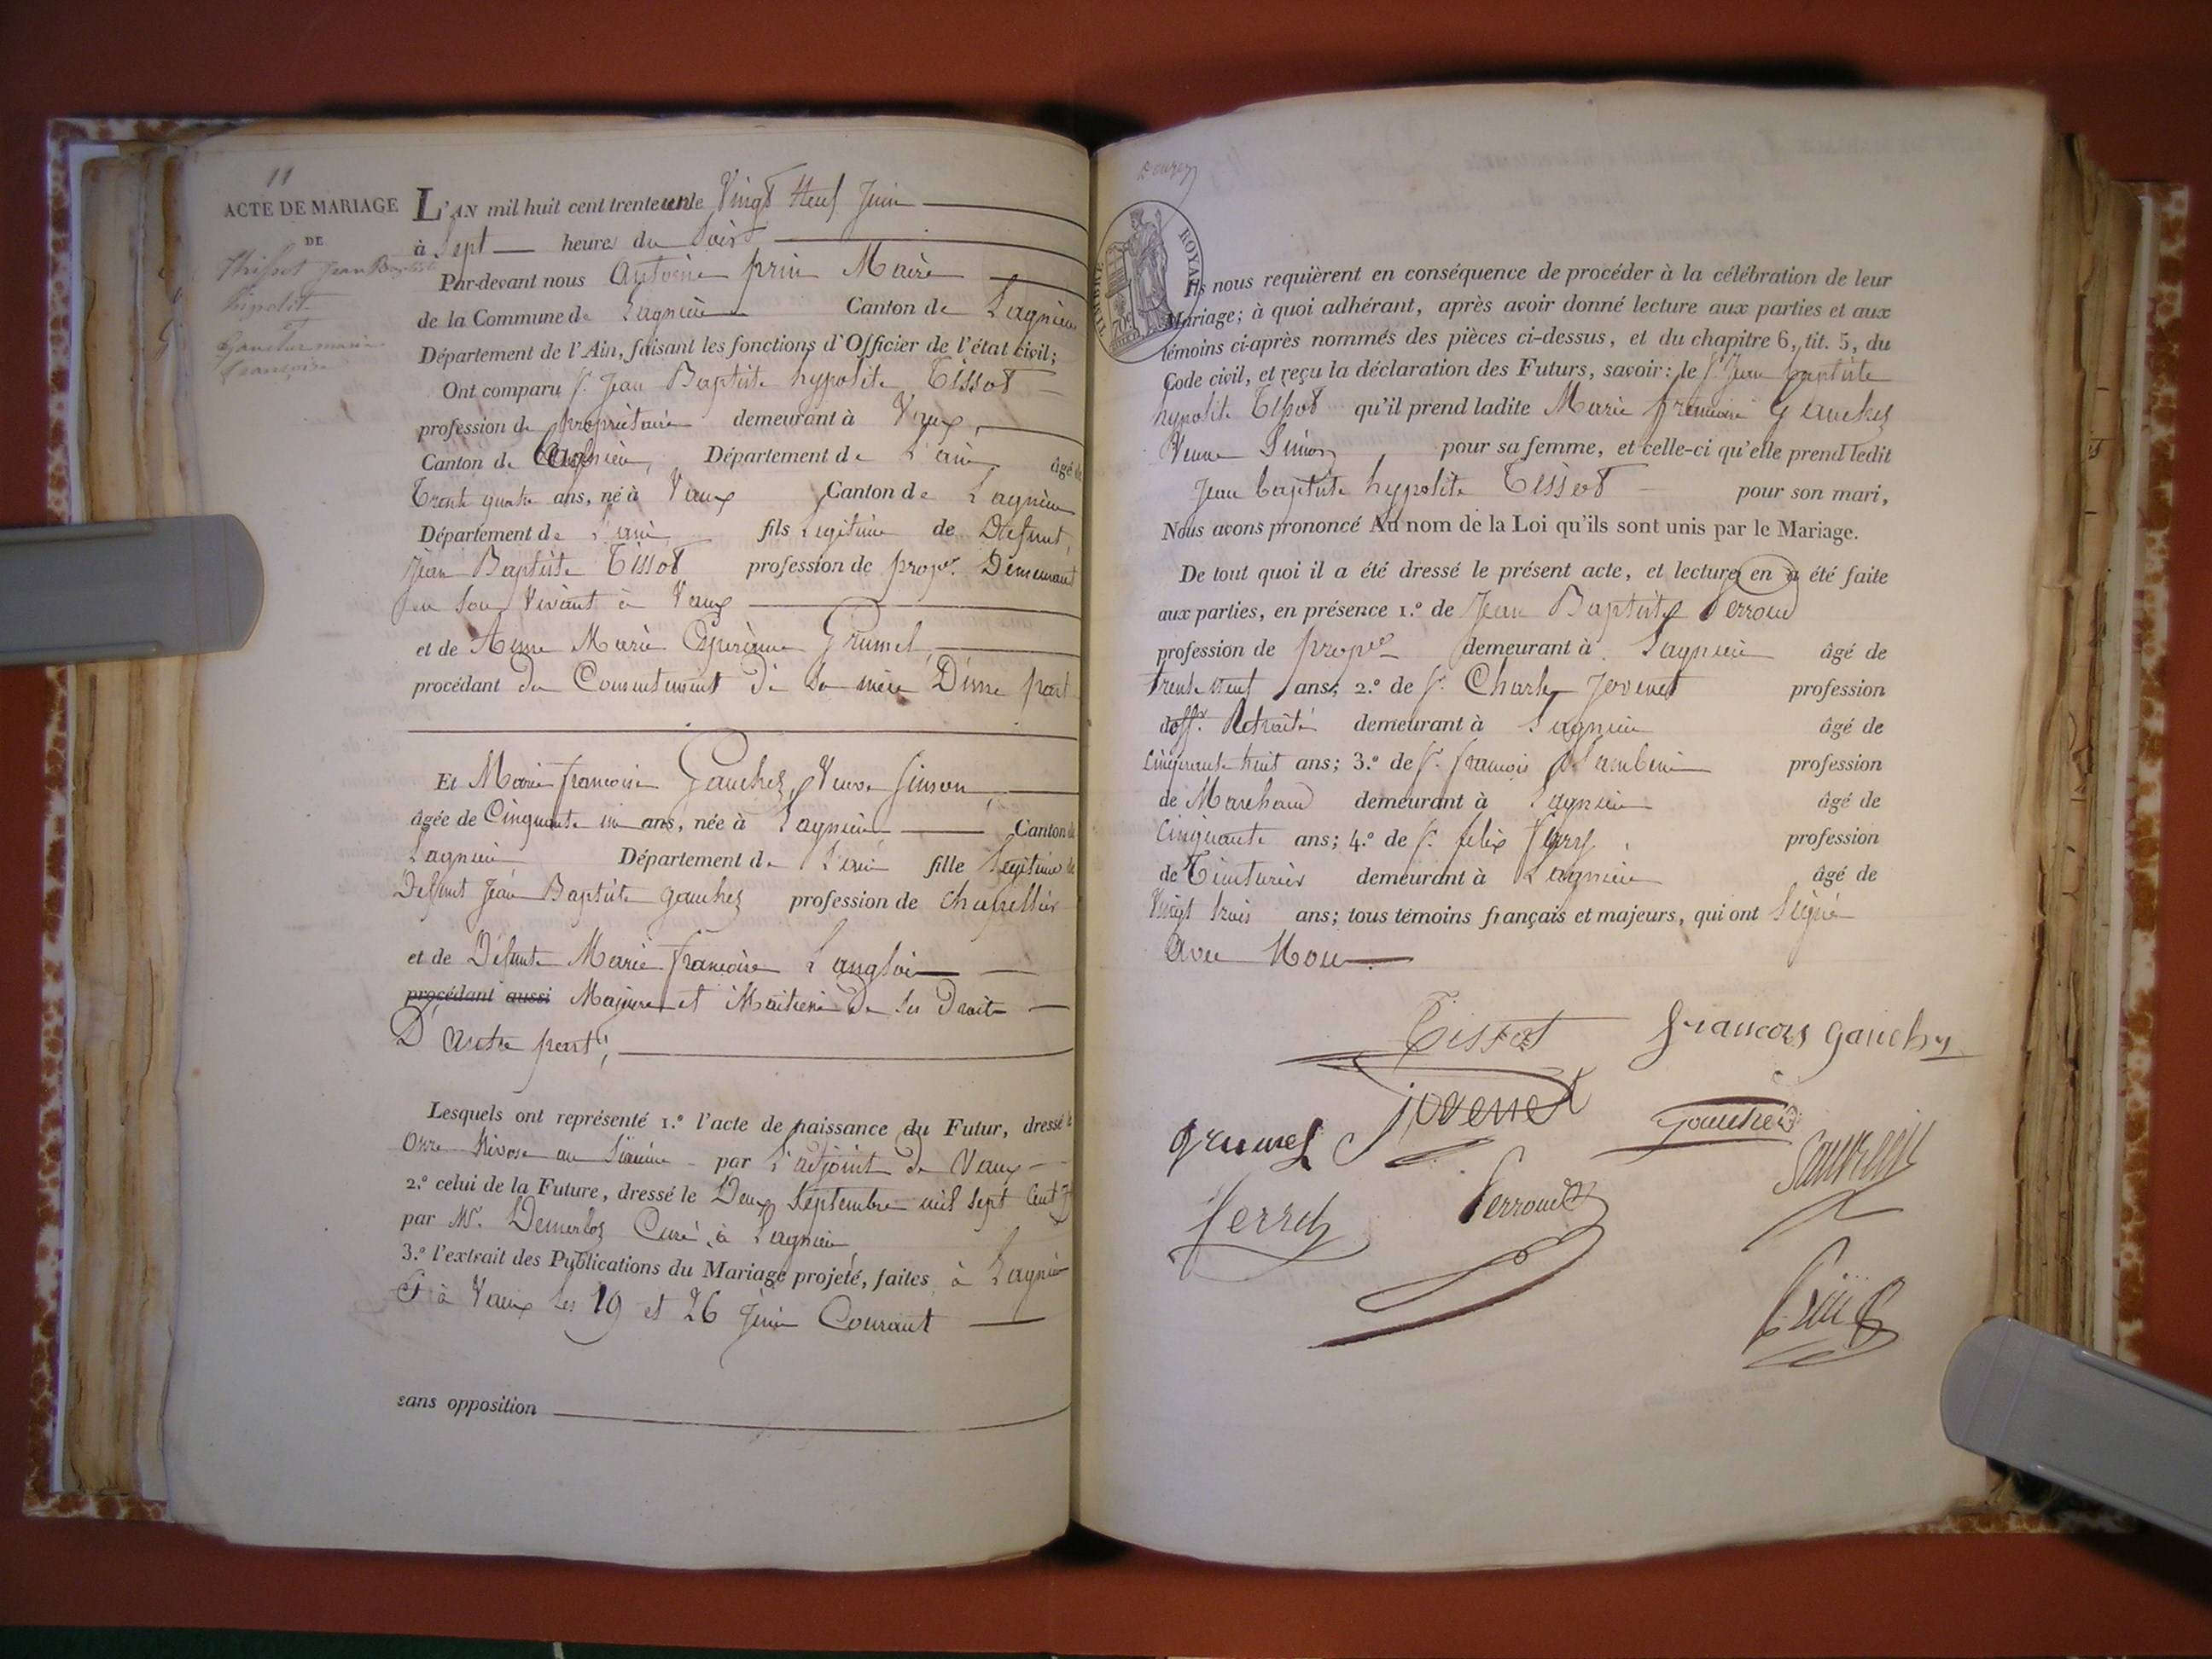 11
ACTE DE MARIAGE
DE
Thissot Jean Baptiste
hipolit
Gauchez marie
francoise
L'AN mil huit cent trente un le Vingt Neuf Juin
à Sept heures du Soir
Par-devant nous Antoine prin Maire
de la Commune de Lagnieu Canton de Lagnieu
Département de l'Ain, faisant les fonctions d'Officier de l'état civil;
Ont comparu Sr. Jean Baptiste hypolite Tissot
profession de propriétaire demeurant à Vaux
Canton de Lagnieu, Département de L'ain âgé de
Trente quatre ans, né à Vaux Canton de Lagnieu
Département de L'ain fils Legitime de Defunt
Jean Baptiste Tissot profession de propre. Demeurant
en Son Vivant à Vaux
et de Anne Marie Grumel
procédant du Consentement de Sa mère D'une part
Et Marie francoise Gauchez, Veuve Simon
âgée de Cinquante un ans, née à Lagnieu Canton de
Lagnieu Département de L'ain fille Legitime de
Defunt Jean Baptiste gauchez profession de Chapellier
et de Défunte Marie francoise Langlois
procédant aussi Majeure et Maitresse De Ses Droits
D'Autre part;
Lesquels ont représenté 1.º l'acte de naissance du Futur, dressé le
Onze Nivose an Sixième par L'adjoint de Vaux
2.º celui de la Future, dressé le Deux Septembre mil Sept Cent
par Mr. Curé à Lagnieu
3.º l'extrait des Publications du Mariage projeté, faites à Lagnieu
Et à Vaux Les 19 et 26 Juin Courant
sans opposition
TIMBRE ROYAL
Ils nous requièrent en conséquence de procéder à la célébration de leur
Mariage; à quoi adhérant, après avoir donné lecture aux parties et aux
témoins ci-après nommés des pièces ci-dessus, et du chapitre 6, tit. 5, du
Code civil, et reçu la déclaration des Futurs, savoir: le Sr. Jean baptiste
hypolite Tissot qu'il prend ladite Marie francoise Gauchez
Veuve Simon pour sa femme, et celle-ci qu'elle prend ledit
Jean baptiste hypolite Tissot pour son mari,
Nous avons prononcé Au nom de la Loi qu'ils sont unis par le Mariage.
De tout quoi il a été dressé le présent acte, et lecture en a été faite
aux parties, en présence 1.º de Jean Baptiste Perroud
profession de propre demeurant à Lagnieu âgé de
Trente Neuf ans; 2.º de Sr. Charles Jovenet profession
d'offr. Retraité demeurant à Lagnieu âgé de
Cinquante huit ans; 3.º de Sr. francois profession
de Marchand demeurant à Lagnieu âgé de
Cinquante ans; 4.º de Sr. felix profession
de Teinturier demeurant à Lagnieu âgé de
Vingt trois ans; tous témoins français et majeurs, qui ont Signé
Avec Nous
Tissot francois gauchez
Jovenet
grumel gauchez
Perroud